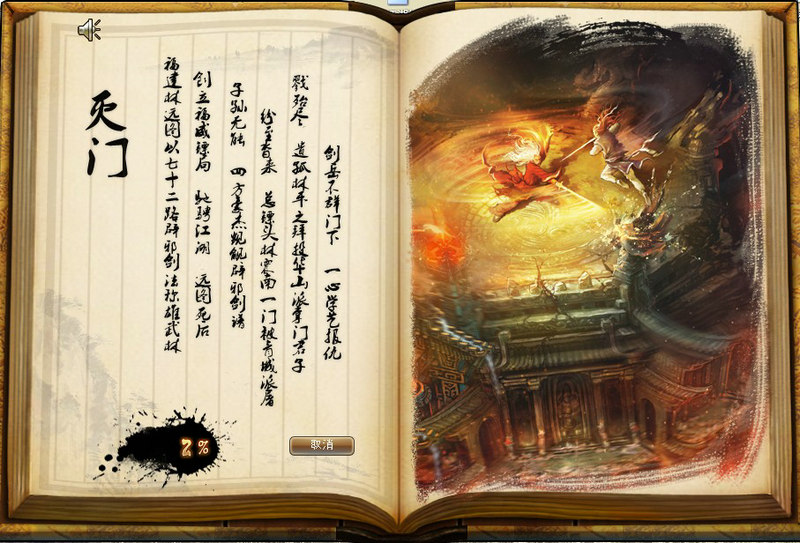 灭门
福建林远图以七十二路辟邪剑法称雄武林
创立福威镖局 驰骋江湖 远图死后
子孙无能 四方豪杰觊觎辟邪剑谱
纷至沓来 总镖头林震南一门被青城派屠
戮殆尽 遗孤林平之拜投华山派掌门君子
剑岳不群门下 一心学艺报仇
2%
取消